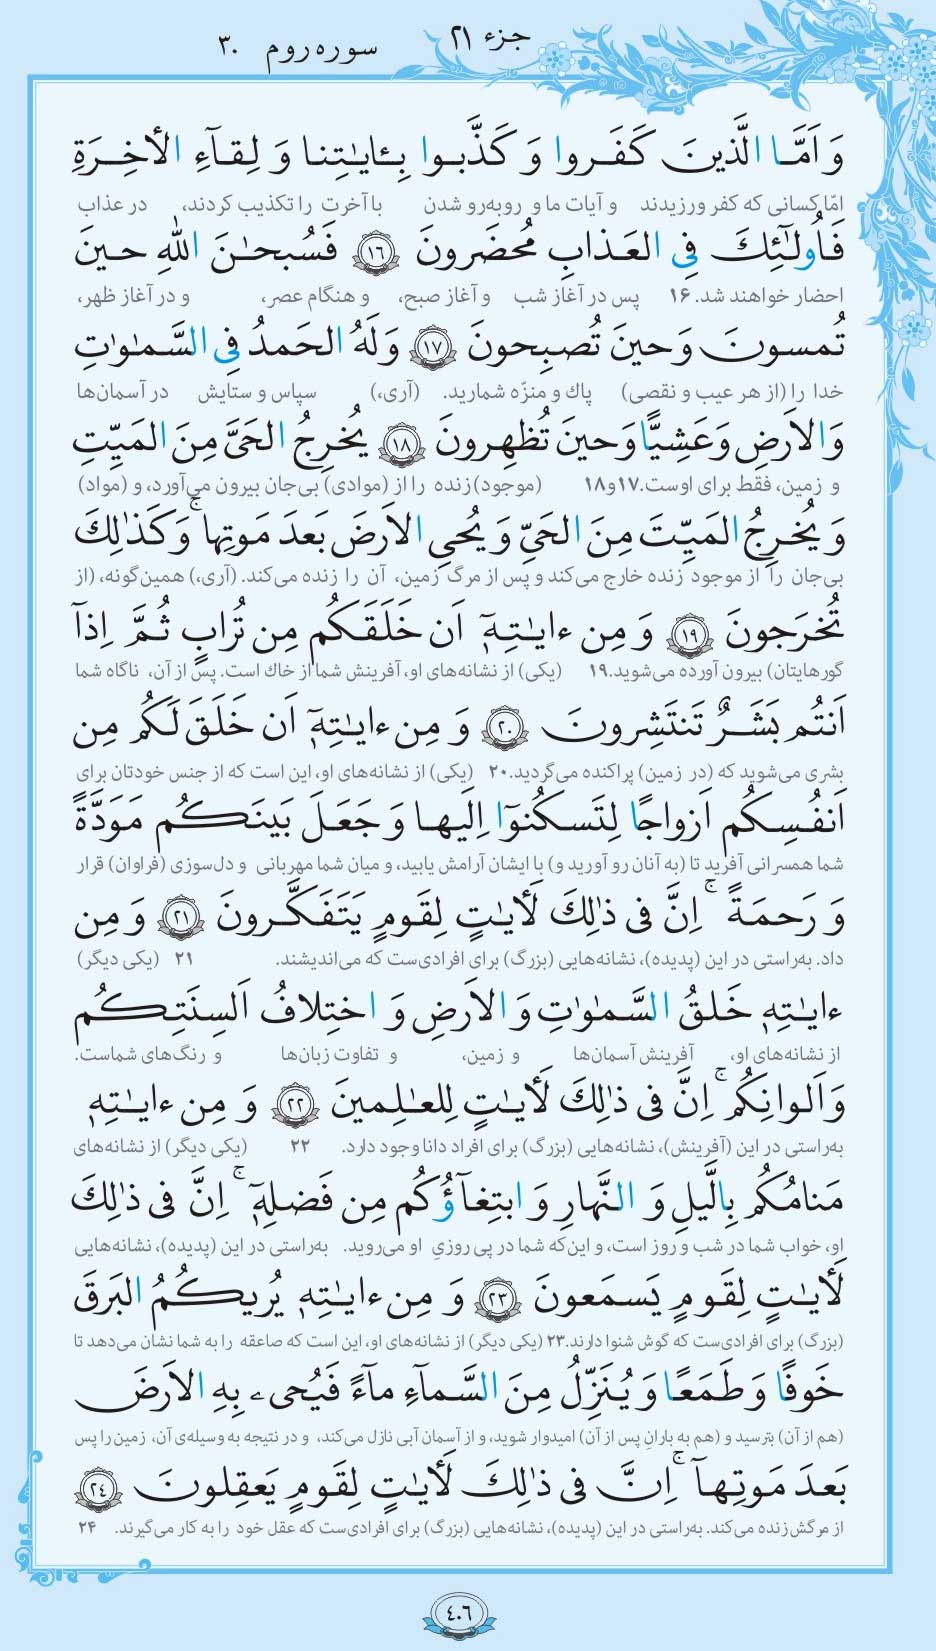 جزء ۲۱
سوره روم ۳۰
وَ اَمَّا الَّذینَ کَفَروا وَ کَذَّبوا بِـٔایـٰتِنا وَ لِقـآءِ الأخِـرَةِ
امّا کسانی که کفر ورزیدند و آیات ما و روبه‌رو شدن با آخرت را تکذیب کردند، در عذاب
فَاُولـٰئِكَ فِی العَذابِ مُحضَرونَ ۱۶ فَسُبحـٰنَ اللهِ حینَ
احضار خواهند شد. ۱۶ پس در آغاز شب و آغاز صبح، و هنگام عصر، و در آغاز ظهر،
تُمسونَ وَ حینَ تُصبِحونَ ۱۷ وَ لَهُ الحَمدُ فِی السَّمـٰوٰتِ
خدا را (از هر عیب و نقصی) پاك و منزّه شمارید. (آری،) سپاس و ستایش در آسمان‌ها
وَ الاَرضِ وَ عَشِیًّا وَ حینَ تُظهِرونَ ۱۸ یُخرِجُ الحَیَّ مِنَ المَیِّتِ
و زمین، فقط برای اوست. ۱۷و۱۸ (موجود) زنده را از (موادی) بی‌جان بیرون می‌آورد، و (مواد)
وَ یُخرِجُ المَیِّتَ مِنَ الحَیِّ وَ یُحیِ الاَرضَ بَعدَ مَوتِها ۚ وَ کَذٰلِكَ
بی‌جان را از موجود زنده خارج می‌کند و پس از مرگ زمین، آن را زنده می‌کند. (آری،) همین‌گونه، (از
تُخرَجونَ ۱۹ وَ مِن ءایـٰتِهٖٓ اَن خَلَقَکُم مِن تُرابٍ ثُمَّ اِذآ
گورهایتان) بیرون آورده می‌شوید. ۱۹ (یکی) از نشانه‌های او، آفرینش شما از خاك است. پس از آن، ناگاه شما
اَنتُم بَشَرٌ تَنتَشِرونَ ۲۰ وَ مِن ءایـٰتِهٖٓ اَن خَلَقَ لَکُم مِن
بشری می‌شوید که (در زمین) پراکنده می‌گردید. ۲۰ (یکی) از نشانه‌های او، این است که از جنس خودتان برای
اَنفُسِکُم اَزواجًا لِتَسکُنوٓا اِلَیها وَ جَعَلَ بَینَکُم مَوَدَّةً
شما همسرانی آفرید تا (به آنان رو آورید و) با ایشان آرامش یابید، و میان شما مهربانی و دل‌سوزی (فراوان) قرار
وَ رَحمَةً ۚ اِنَّ فی ذٰلِكَ لَأیـٰتٍ لِقَومٍ یَتَفَکَّرونَ ۲۱ وَ مِن
داد. به‌راستی در این (پدیده)، نشانه‌هایی (بزرگ) برای افرادی‌ست که می‌اندیشند. ۲۱ (یکی دیگر)
ءایـٰتِهٖ خَلقُ السَّمـٰوٰتِ وَ الاَرضِ وَ اختِلافُ اَلسِنَتِکُم
از نشانه‌های او، آفرینش آسمان‌ها و زمین، و تفاوت زبان‌ها و رنگ‌های شماست.
وَ اَلوانِکُم ۚ اِنَّ فی ذٰلِكَ لَأیـٰتٍ لِلعـٰلِمینَ ۲۲ وَ مِن ءایـٰتِهٖ
به‌راستی در این (آفرینش)، نشانه‌هایی (بزرگ) برای افراد دانا وجود دارد. ۲۲ (یکی دیگر) از نشانه‌های
مَنامُکُم بِالَّیلِ وَ النَّهارِ وَ ابتِغآؤُکُم مِن فَضلِهٖٓ ۚ اِنَّ فی ذٰلِكَ
او، خواب شما در شب و روز است، و این‌که شما در پی روزیِ او می‌روید. به‌راستی در این (پدیده)، نشانه‌هایی
لَأیـٰتٍ لِقَومٍ یَسمَعونَ ۲۳ وَ مِن ءایـٰتِهٖ یُریکُمُ البَرقَ
(بزرگ) برای افرادی‌ست که گوش شنوا دارند. ۲۳ (یکی دیگر) از نشانه‌های او، این است که صاعقه را به شما نشان می‌دهد تا
خَوفًا وَ طَمَعًا وَ یُنَزِّلُ مِنَ السَّمآءِ مآءً فَیُحیۦ بِهِ الاَرضَ
(هم از آن) بترسید و (هم به بارانِ پس از آن) امیدوار شوید، و از آسمان آبی نازل می‌کند، و در نتیجه به وسیله‌ی آن، زمین را پس
بَعدَ مَوتِهآ ۚ اِنَّ فی ذٰلِكَ لَأیـٰتٍ لِقَومٍ یَعقِلونَ ۲۴
از مرگش زنده می‌کند. به‌راستی در این (پدیده)، نشانه‌هایی (بزرگ) برای افرادی‌ست که عقل خود را به کار می‌گیرند. ۲۴
۴۰۶